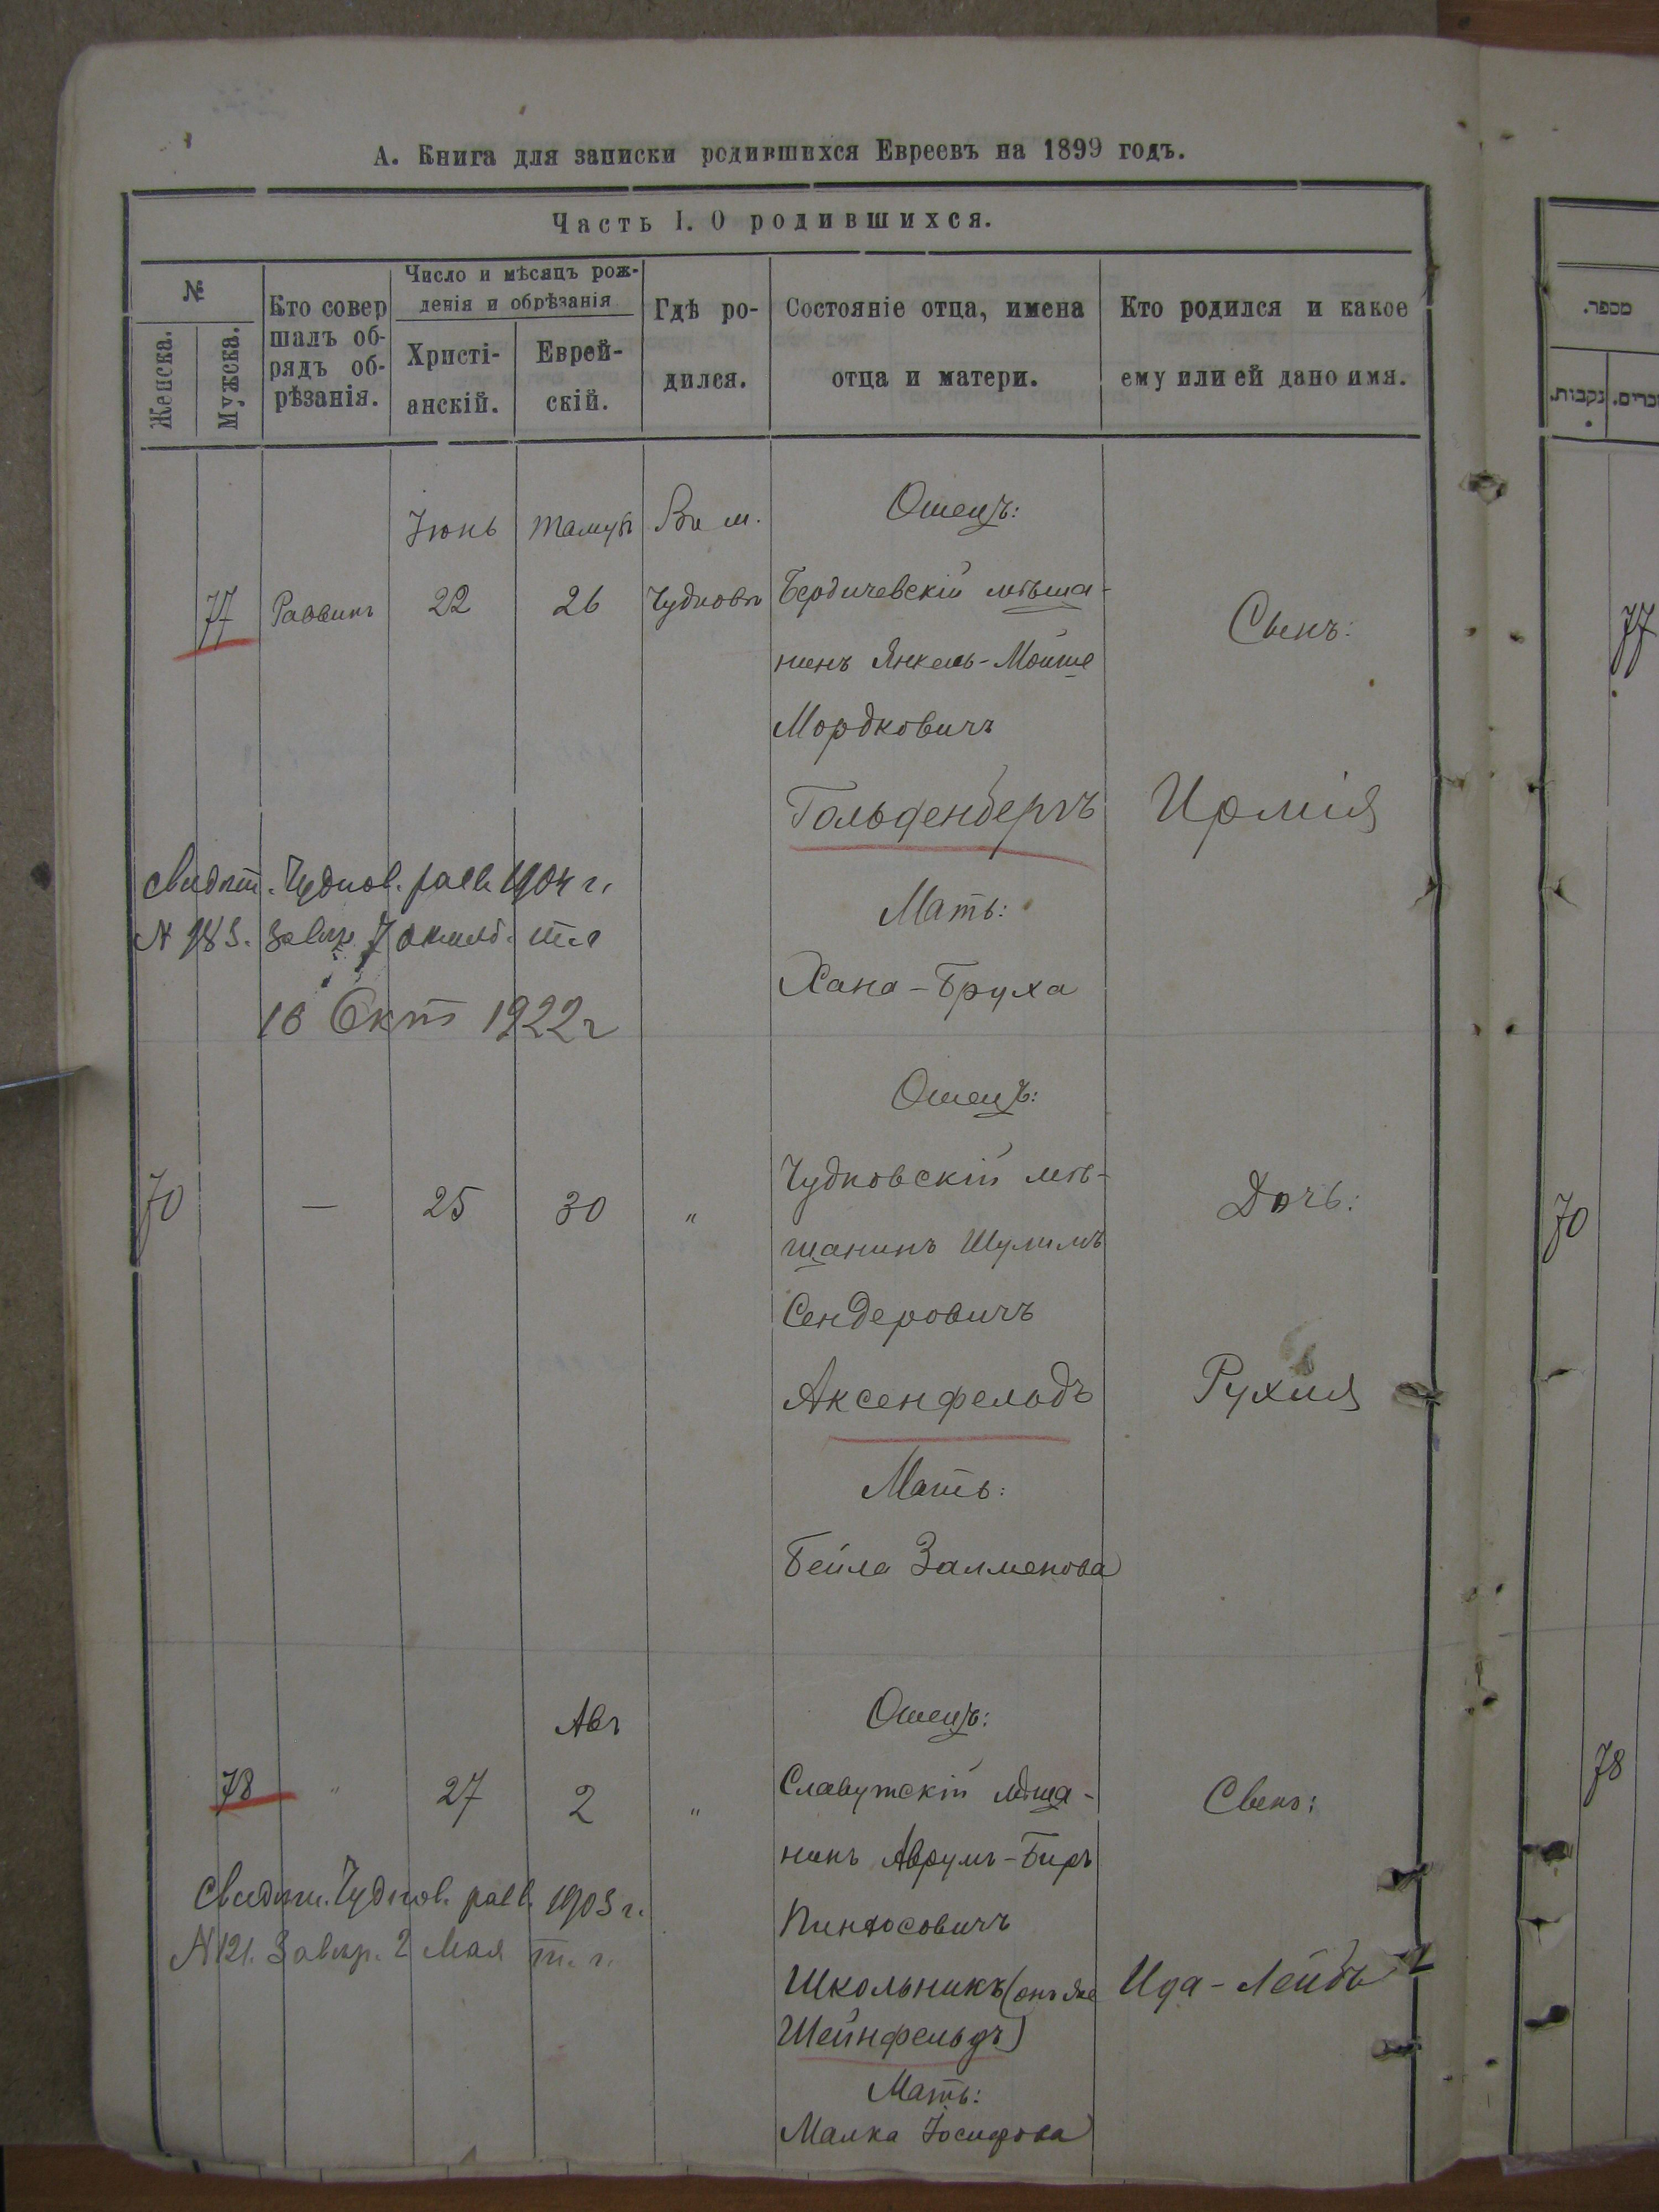 А. Книга для записки родившихся Евреевъ на 1899 годъ.
Часть I. О родившихся.
№
Женска.
Мужска.
Кто совер
шалъ об-
рядъ об-
рѣзанія.
Число и мѣсяцъ рож-
денія и обрѣзанія
Христі-
анскій.
Еврей-
скій.
Гдѣ ро-
дился.
Состояніе отца, имена
отца и матери.
Кто родился и какое
ему или ей дано имя.
מספר.
נקבות.
זכרים.
Іюнь
Тамузъ
Въ м.
Отецъ:
77
Раввинъ
22
26
Чудновъ
Бердичевскій мѣща-
нинъ Янкель-Мойше
Мордковичъ
Гольденбергъ
Мать:
Хана-Бруха
Сынъ:
Ирмія
77
Свидѣт. Чуднов. равв. 1904 г.
N 183. т.г
16 Окт 1922 г
70
—
25
30
"
Отецъ:
Чудновскій мѣ-
щанинъ Шулимъ
Сендеровичъ
Аксенфельдъ
Мать:
Бейла Залменова
Дочь:
Рухля
70
Авъ
78
"
27
2
"
Отецъ:
Славутскій мѣща-
нинъ Аврумъ-Беръ
Пинхосовичъ
Школьникъ (онъ же
Шейнфельдъ)
Мать:
Малка Іосифова
Сынъ:
Ида-Лейбъ
78
Свидѣт. Чуднов. равв. 1903 г.
N 121. Завѣр. 2 Мая т. г.